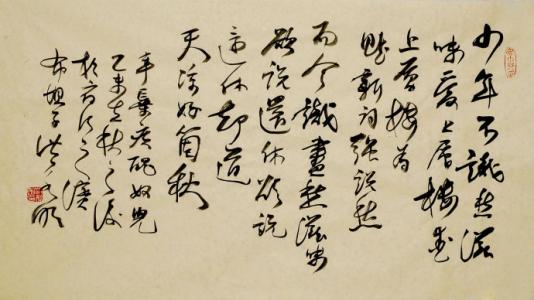 少年不識愁滋
味愛上層樓愛
上層樓為
賦新詞強說愁
而今識盡愁滋味
欲說還休欲說
還休却道
天涼好箇秋
辛棄疾醜奴兒
乙未立秋之後